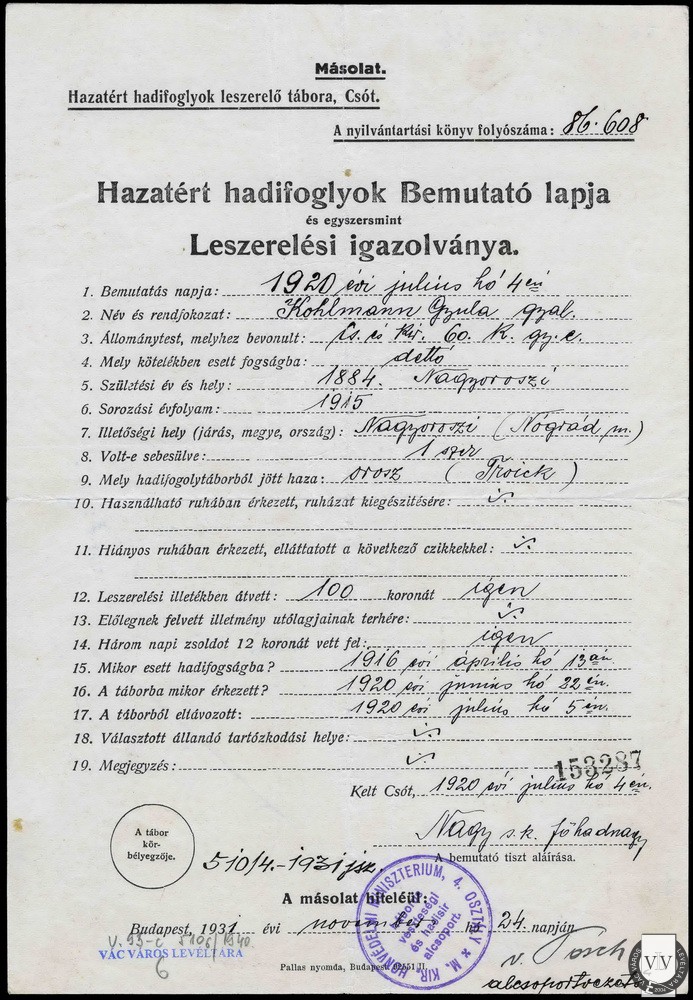 Másolat.
Hazatért hadifoglyok leszerelő tábora, Csót.
A nyilvántartási könyv folyószáma: 86.608
Hazatért hadifoglyok Bemutató lapja
és egyszersmint
Leszerelési igazolványa.
1. Bemutatás napja: 1920 évi július hó 4én
2. Név és rendfokozat: Kohlmann Gyula gyal.
3. Állománytest, melyhez bevonult: cs. és kir. 60. k. gy. e.
4. Mely kötelékben esett fogságba: dettó
5. Születési év és hely: 1884. Nagyoroszi
6. Sorozási évfolyam: 1915
7. Illetőségi hely (járás, megye, ország): Nagyoroszi (Nógrád m.)
8. Volt-e sebesülve: 1 szer
9. Mely hadifogolytáborból jött haza: orosz (Troick)
10. Használható ruhában érkezett, ruházat kiegészitésére:
11. Hiányos ruhában érkezett, elláttatott a következő czikkekkel:
12. Leszerelési illetékben átvett: 100 koronát igen
13. Előlegnek felvett illetmény utólagjainak terhére:
14. Három napi zsoldot 12 koronát vett fel: igen
15. Mikor esett hadifogságba? 1916 évi április hó 13án
16. A táborba mikor érkezett? 1920 évi június hó 22én.
17. A táborból eltávozott: 1920 évi július hó 5én.
18. Választott állandó tartózkodási helye:
19. Megjegyzés:
153287
Kelt Csót, 1920 évi július hó 4én.
Nagy s.k. főhadnagy
A bemutató tiszt aláírása.
A tábor
kör-
bélyegzője.
510/4.-1931 jsz.
A másolat hiteléül:
Budapest, 1931 évi november hó 24. napján
M. KIR. HONVÉDELMI MINISZTERIUM, 4. OSZTÁLY
háborús
veszteségi
és hadisír
alcsoport.
V. 93-c 5106/1940
VÁC VÁROS LEVÉLTÁRA
6
Pallas nyomda, Budapest
v. Posch
alcsoportvezető